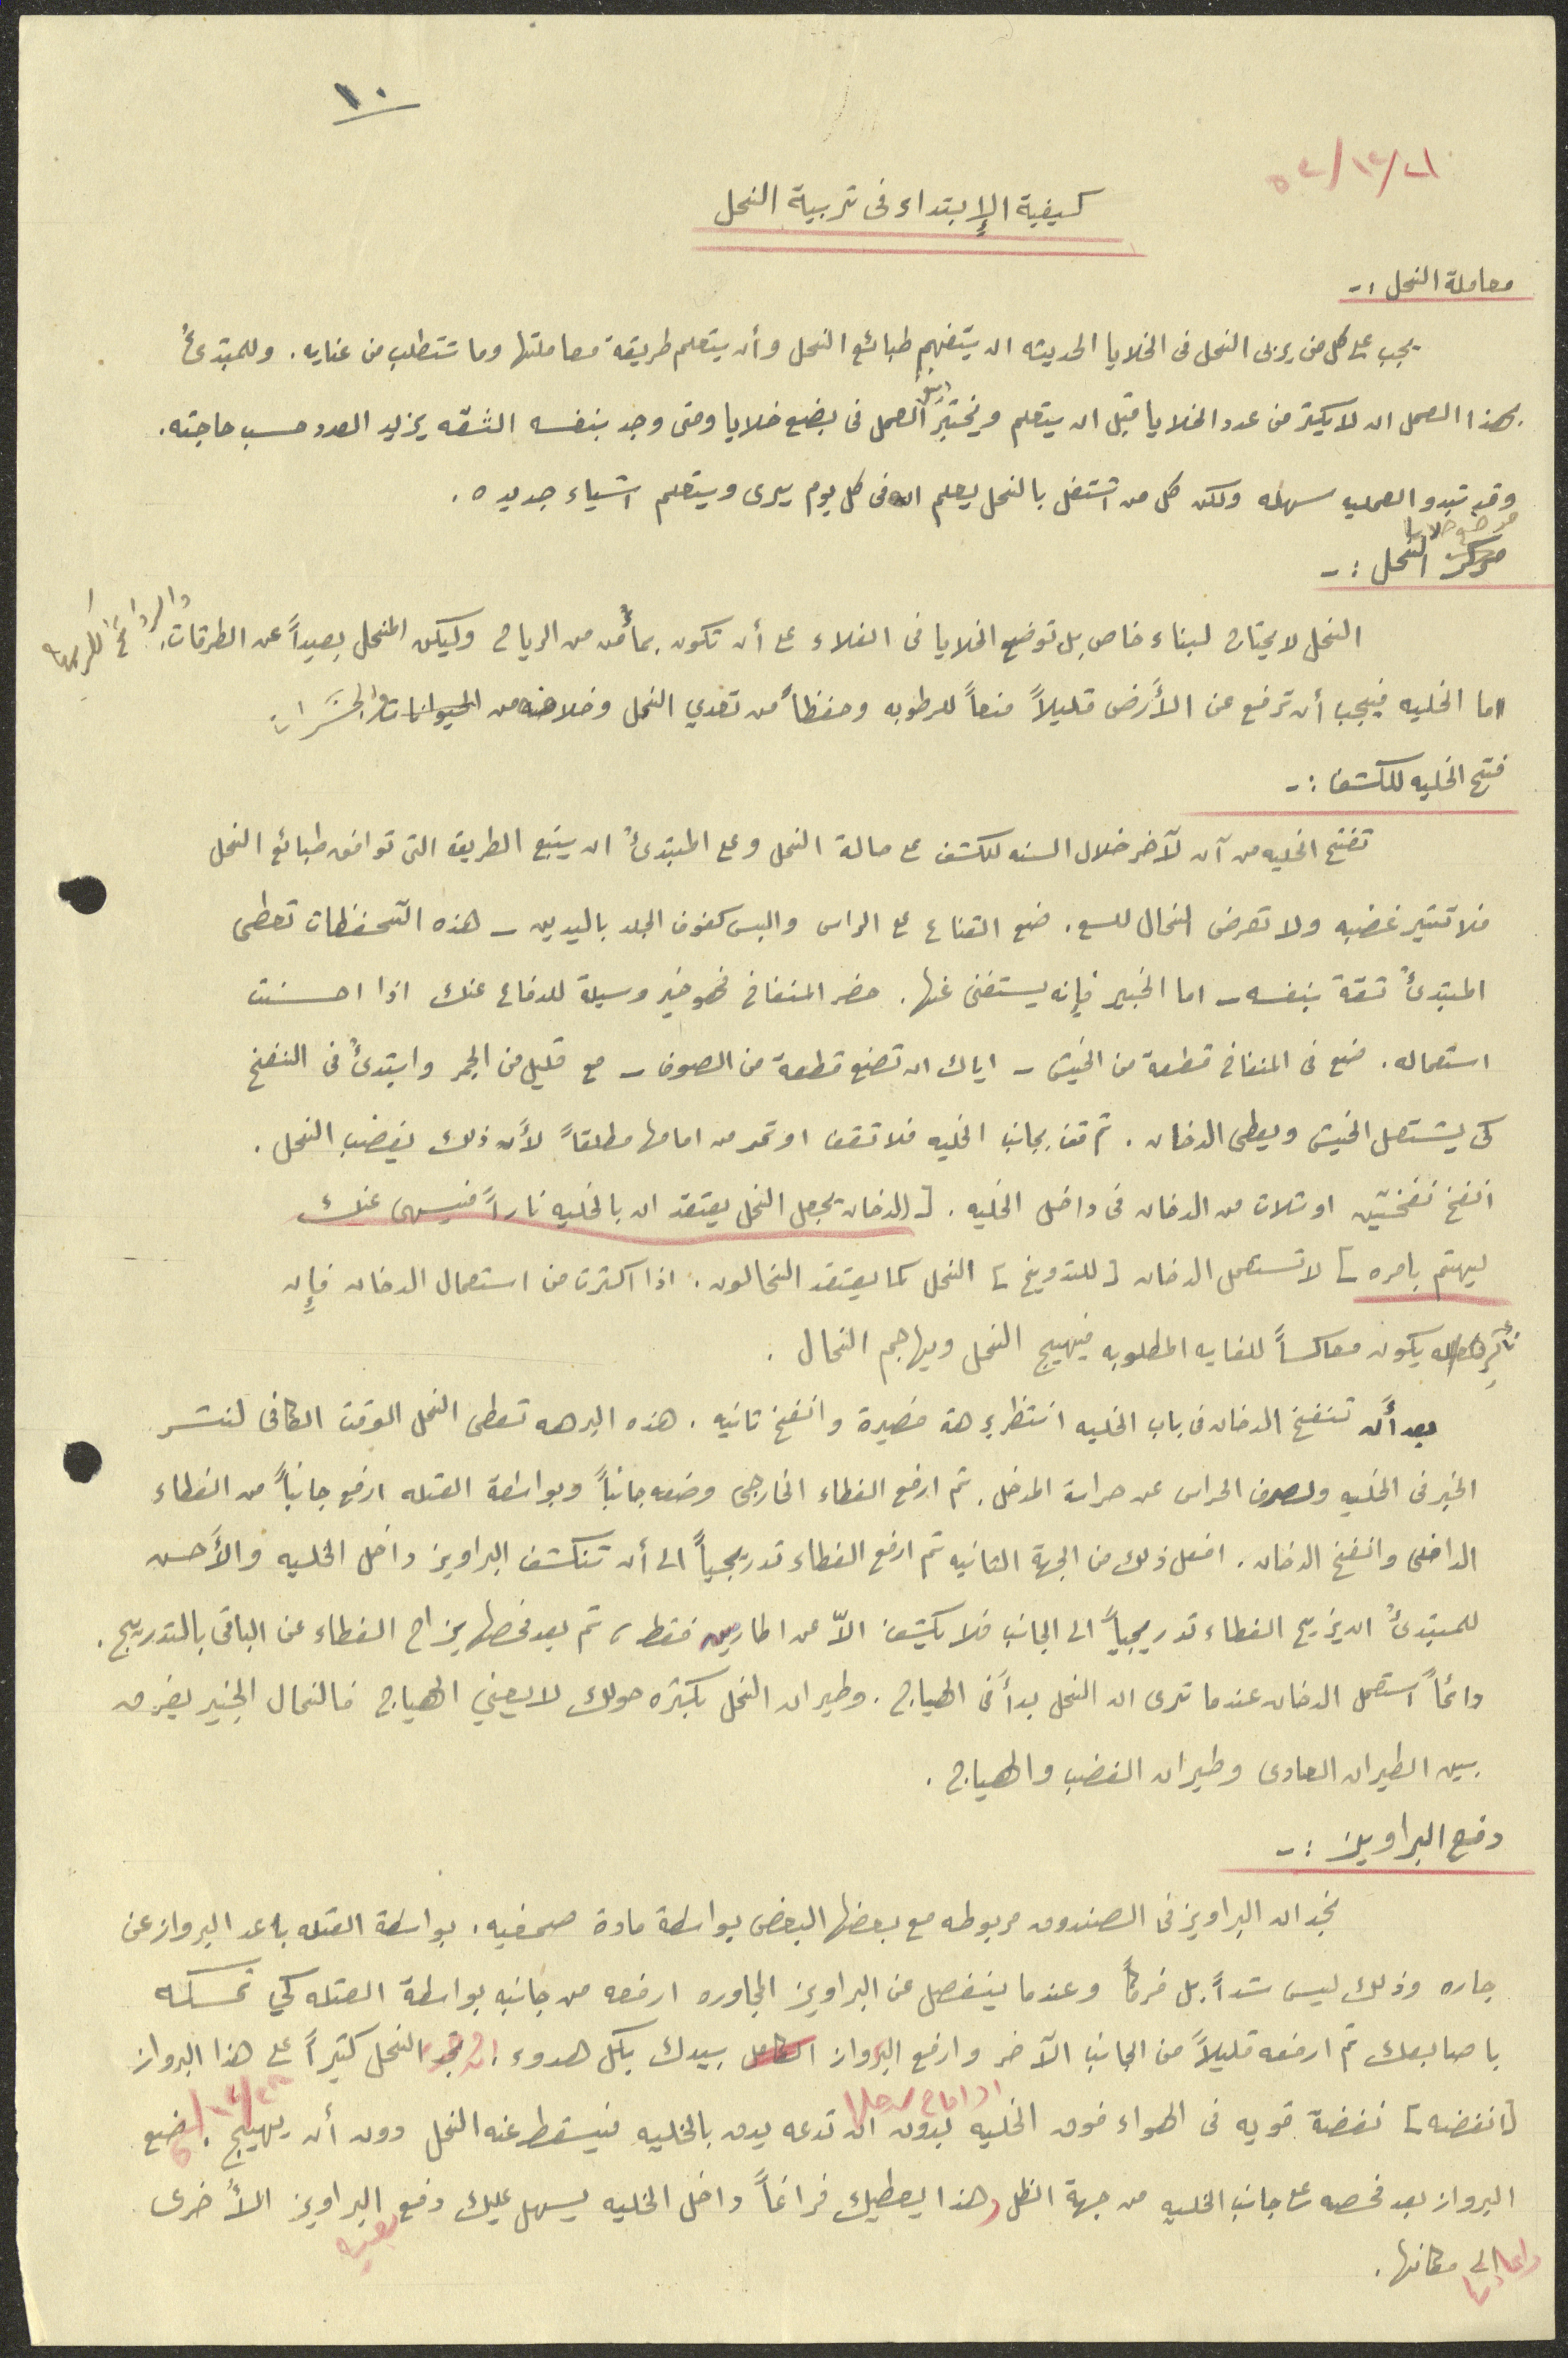 ١٠
٢١/١٢/٥٤
كيفية الإبتداء فى تربية النحل
معاملة النحل :-
يجب على كل من يربى النحل فى الخلايا الحديثه ان يتفهم طبائع النحل وأن يتعلم طريقة معاملتها وما تتطلب من عنايه . وللمبتدئ
بهذا العمل ان لا يكثر من عدد الخلايا قبل ان يتعلم ويختبر العمل فى بضع خلايا ومتى وجد بنفسه الثقه يزيد العدد حسب حاجته .
وقد تبدو العمليه سهله ولكن كل من اشتغل بالنحل يعلم انه فى كل يوم يرى ويتعلم اشياء جديده .
موضع خلايا
مركز النحل :-
النحل لا يحتاج لبناء خاص بل توضع الخلايا فى الفلاء على أن تكون بمأمن من الرياح وليكن المنحل بعيداً عن الطرقات والروائح الكريهه
اما الخليه فيجب أن ترفع عن الأرض قليلاً منعاً للرطوبه وحفظاً من تعدي النمل وخلافه من الحيوانات والحشرات
فتح الخليه للكشف :-
تفتح الخليه من آن لآخر خلال السنه للكشف على حالة النحل وعلى المبتدئ ان يتبع الطريقه التى توافق طبائع النحل
فلا تثير غضبه ولا تعرض النحال للسع . ضع القناع على الراس والبس كفوف الجلد باليدين - هذه التحفظات تعطى
المبتدئ ثقة بنفسه - اما الخبير فإنه يستغنى عنها . حضر المنفاخ فهو خير وسيلة للدفاع عنك اذا احسنت
استعماله . ضع فى المنفاخ قطعة من الخيش - اياك ان تضع قطعة من الصوف - مع قليل من الجمر وابتدئ فى النفخ
كى يشتعل الخيش ويعطى الدخان . ثم قف بجانب الخليه فلا تقف او تمر من امامها مطلقاً لأن ذلك يغضب النحل .
انفخ نفختين او ثلاث من الدخان فى داخل الخليه . [ الدخان يجعل النحل يعتقد ان بالخليه ناراً فيسهى عنك
ليهتم بامره ] لا تستعمل الدخان [ للتدويخ ] النحل كما يعتقد النحالون . اذا اكثرت من استعمال الدخان فإن
تأثيره يكون معاكساً للغايه المطلوبه فيهيج النحل ويهاجم النحال .
بعد أن تنفخ الدخان فى باب الخليه انتظر برهة قصيرة وانفخ ثانيه . هذه البرهه تعطى النحل الوقت الكافى لنشر
الخبر فى الخليه ولصرف الحراس عن حراسة المدخل . ثم ارفع الغطاء الخارجى وضعه جانباً وبواسطة العتله ارفع جانباً من الغطاء
الداخلى وانفخ الدخان . افعل ذلك من الجهة الثانيه ثم ارفع الغطاء تدريجياً الى أن تنكشف البراويز داخل الخليه والأحسن
للمبتدئ ان يزيح الغطاء تدريجياً الى الجانب فلا يكشف الاّ عن اطارين فقط ، ثم بعد فحصها يزاح الغطاء عن الباقى بالتدريج .
دائماً استعمل الدخان عندما ترى ان النحل بدأ فى الهياج . وطيران النحل بكثره حولك لا يعني الهياج فالنحال الخبير يفرق
بين الطيران العادى وطيران الغضب والهياج .
رفع البراويز :-
نجد ان البراويز فى الصندوق مربوطه مع بعضها البعض بواسطة مادة صمغيه . بواسطة العتله باعد البرواز عن
جاره وذلك ليس شداً بل فركاً وعندما ينفصل عن البراويز المجاوره ارفعه من جانبه بواسطة العتله كي تمسكه
باصابعك ثم ارفعه قليلاً من الجانب الآخر وارفع البرواز الكامل بيدك بكل هدوء . النحل كثيراً على هذا البرواز
[ انفضه ] نفضة قويه فى الهواء فوق الخليه بدون ان تدعه يدق بالخليه فيسقط عنه النحل دون أن يهيج . ضع
البرواز بعد فحصه على جانب الخليه من جهة الظل وهذا يعطيك فراغاً داخل الخليه يسهل عليك رفع البراويز الأخرى
واعادتها الى مكانها .